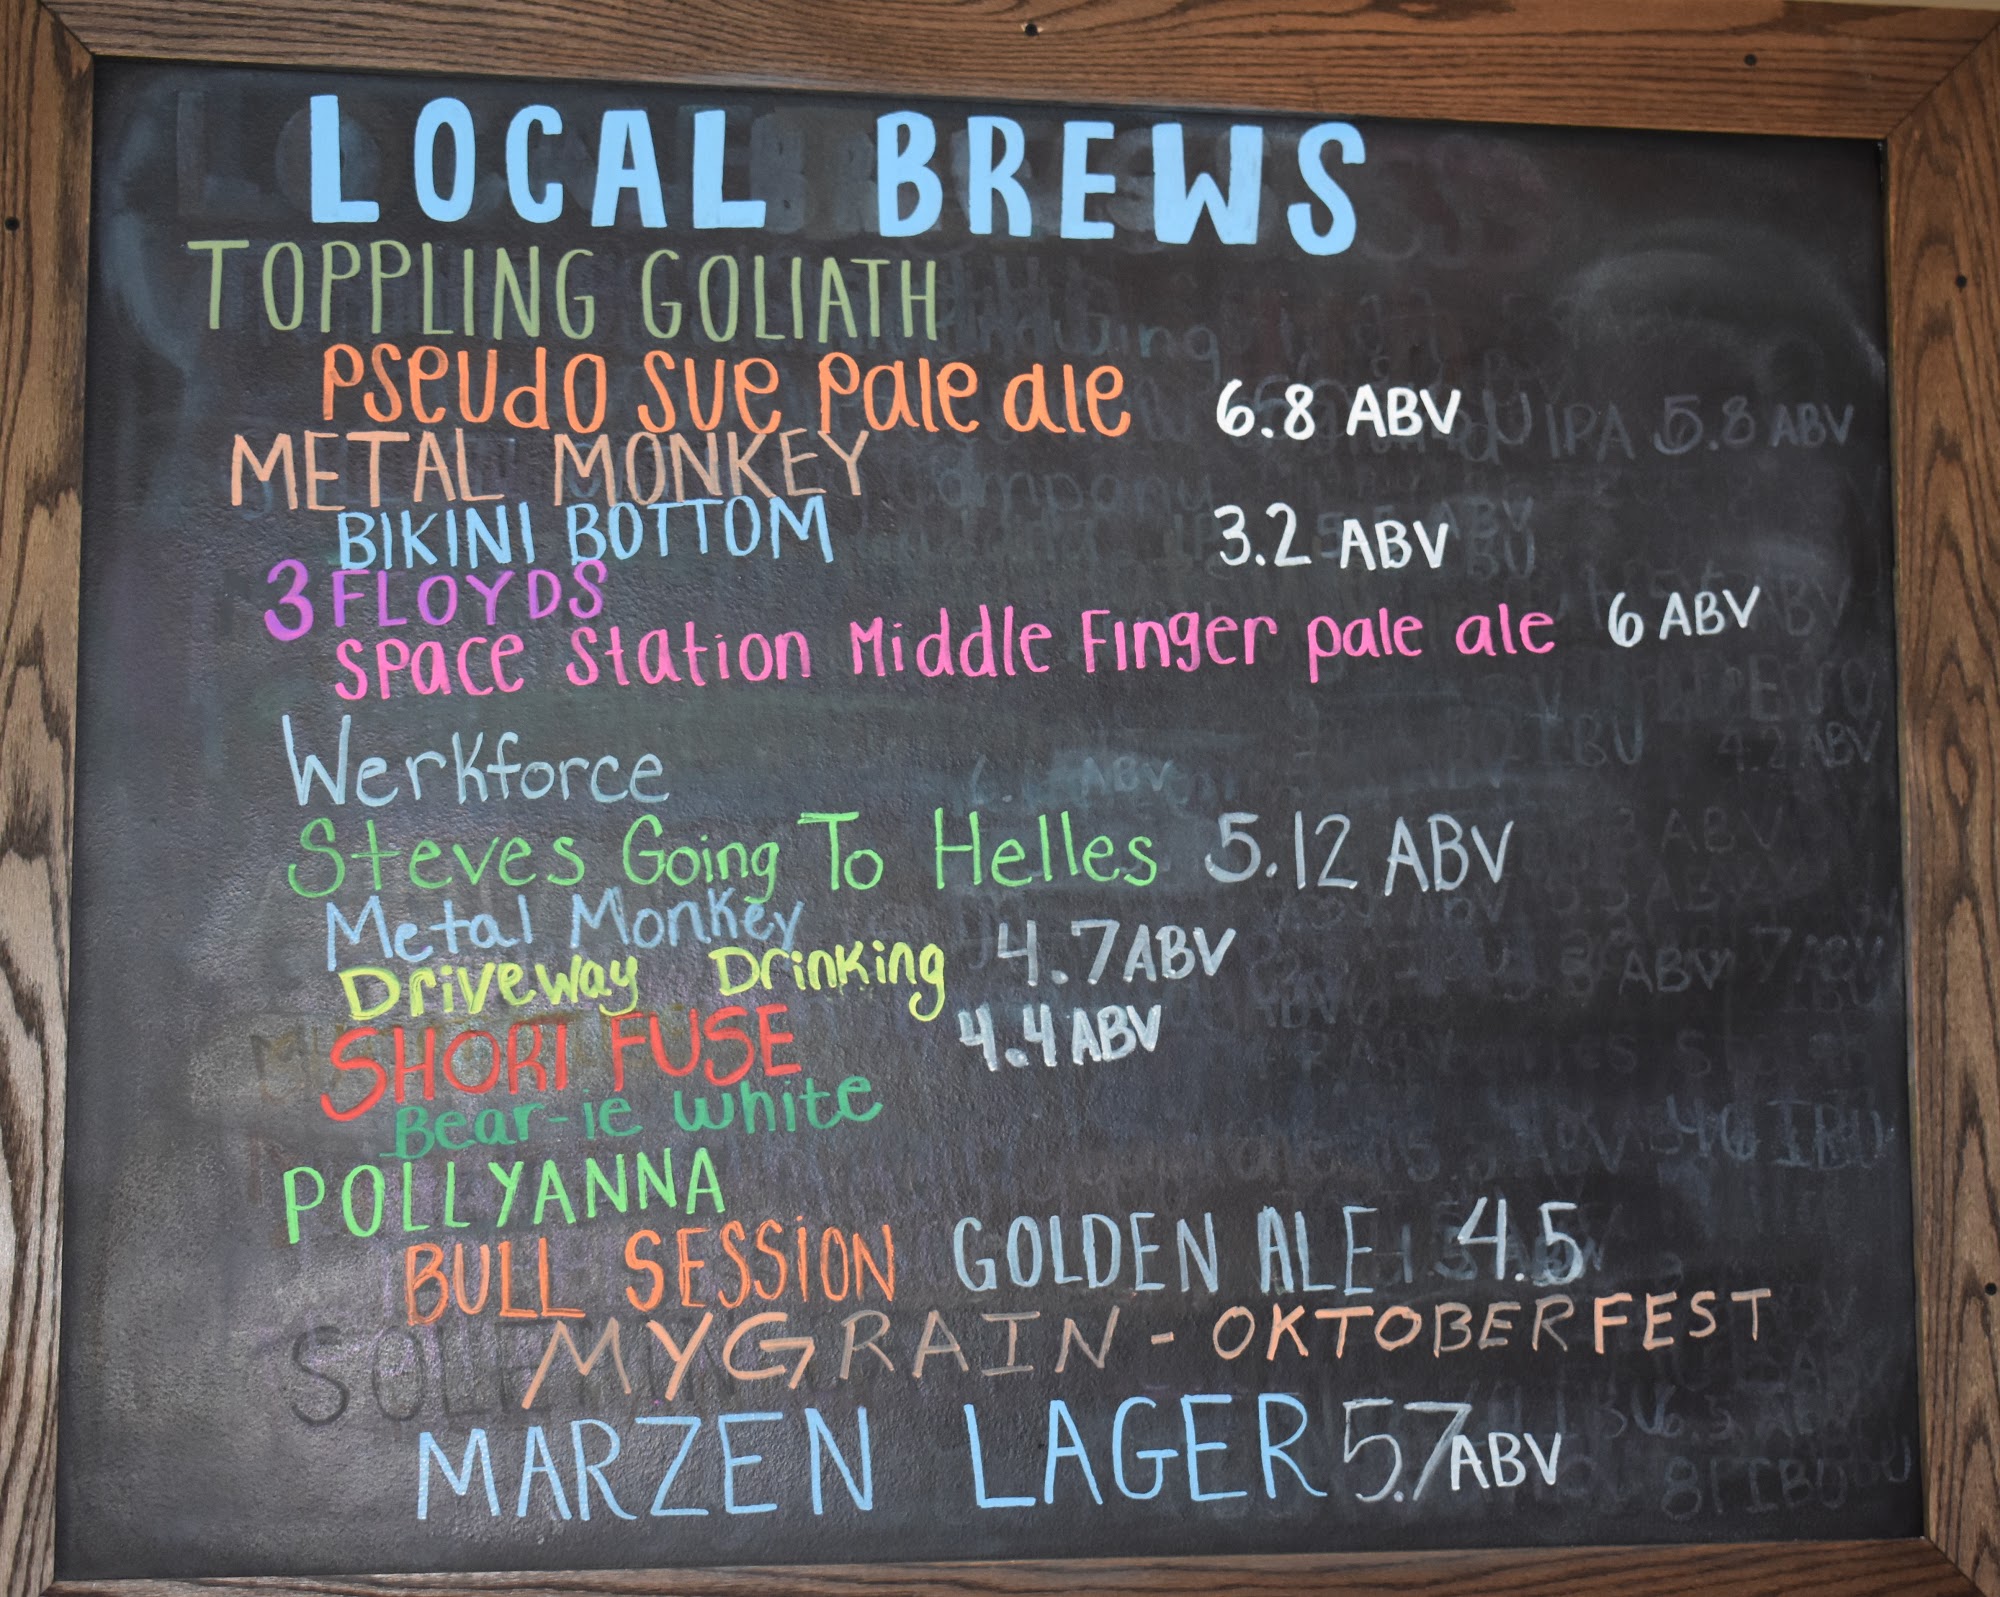 LOCAL BREWS
TOPPLING GOLIATH
PSEUdO SUE PALE ALE 6.8 ABV
METAL MONKEY
BIKINI BOTTOM 3.2 ABV
3 FLOYDS
SPACE Station Middle Finger pale ale 6 ABV
Werkforce
Steves Going To Helles 5.12 ABV
Metal Monkey
Driveway Drinking 4.7 ABV
SHORT FUSE 4.4 ABV
Bear-ie white
POLLYANNA
BULL SESSION GOLDEN ALE 4.5
MYGRAIN - OKTOBERFEST
MARZEN LAGER 5.7 ABV